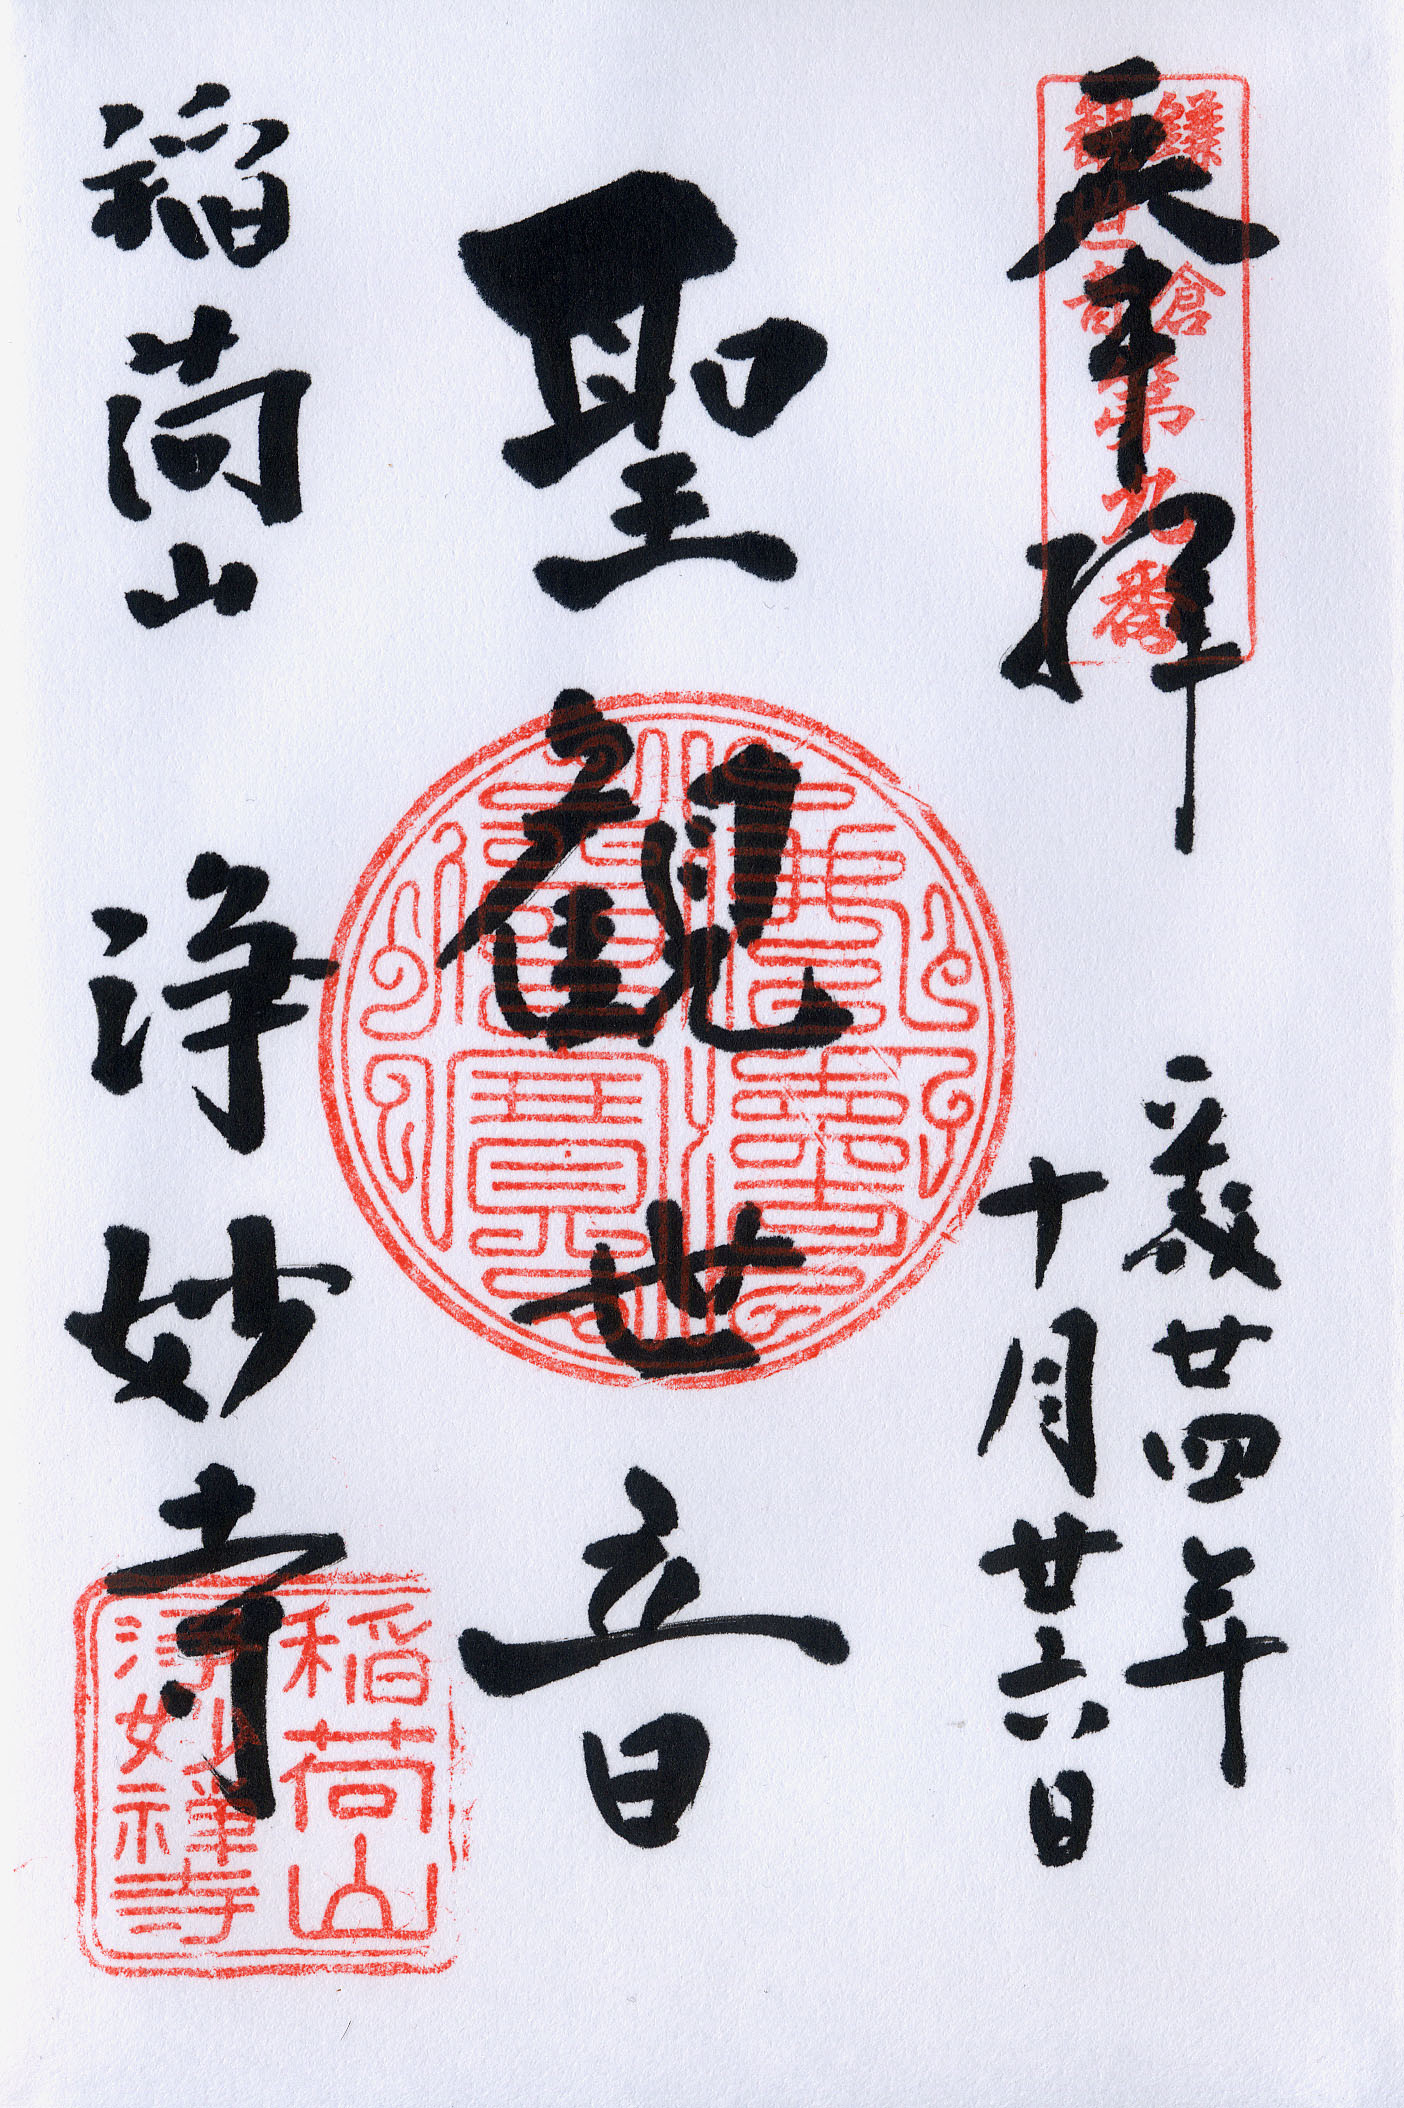 奉拝
鎌倉
観世音
第九番
平成廿四年
十月廿六日
聖観世音
佛法僧寶
稲荷山 浄妙寺
稲荷山
浄妙禅寺